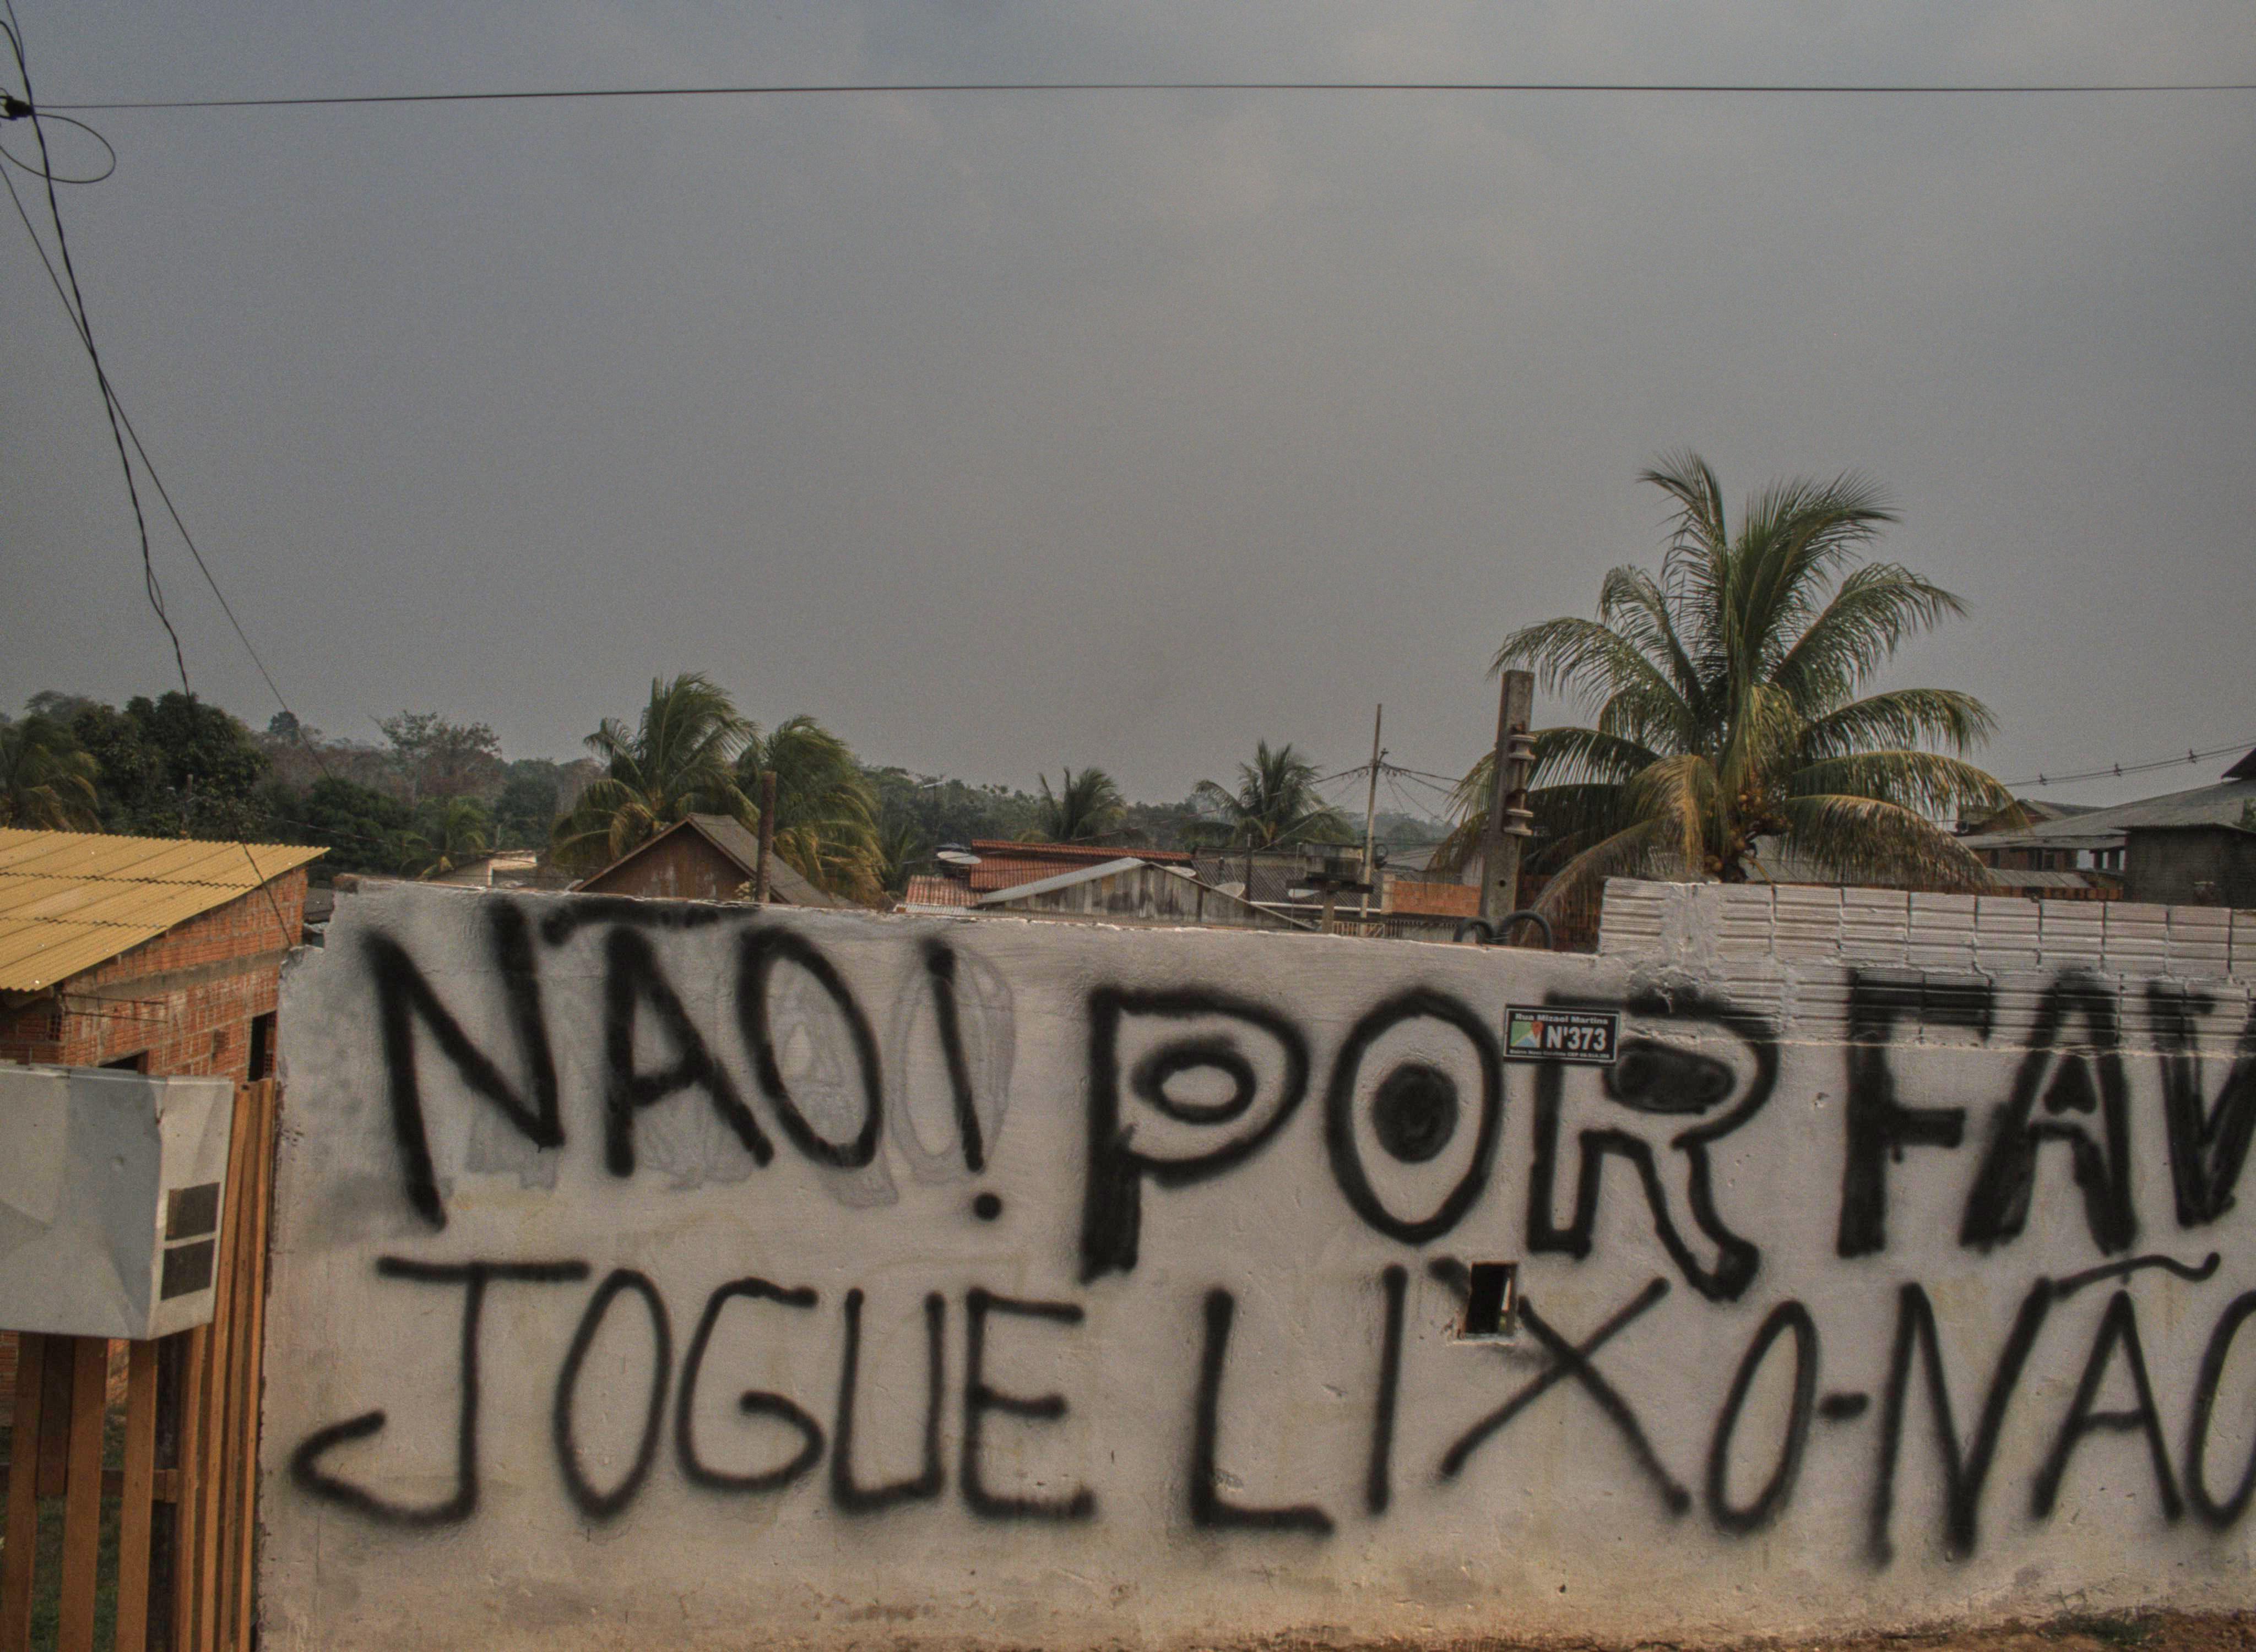 NÃO! POR FAV
JOGUE LIXO-NÃO
Rua Mizael Martins
N'373